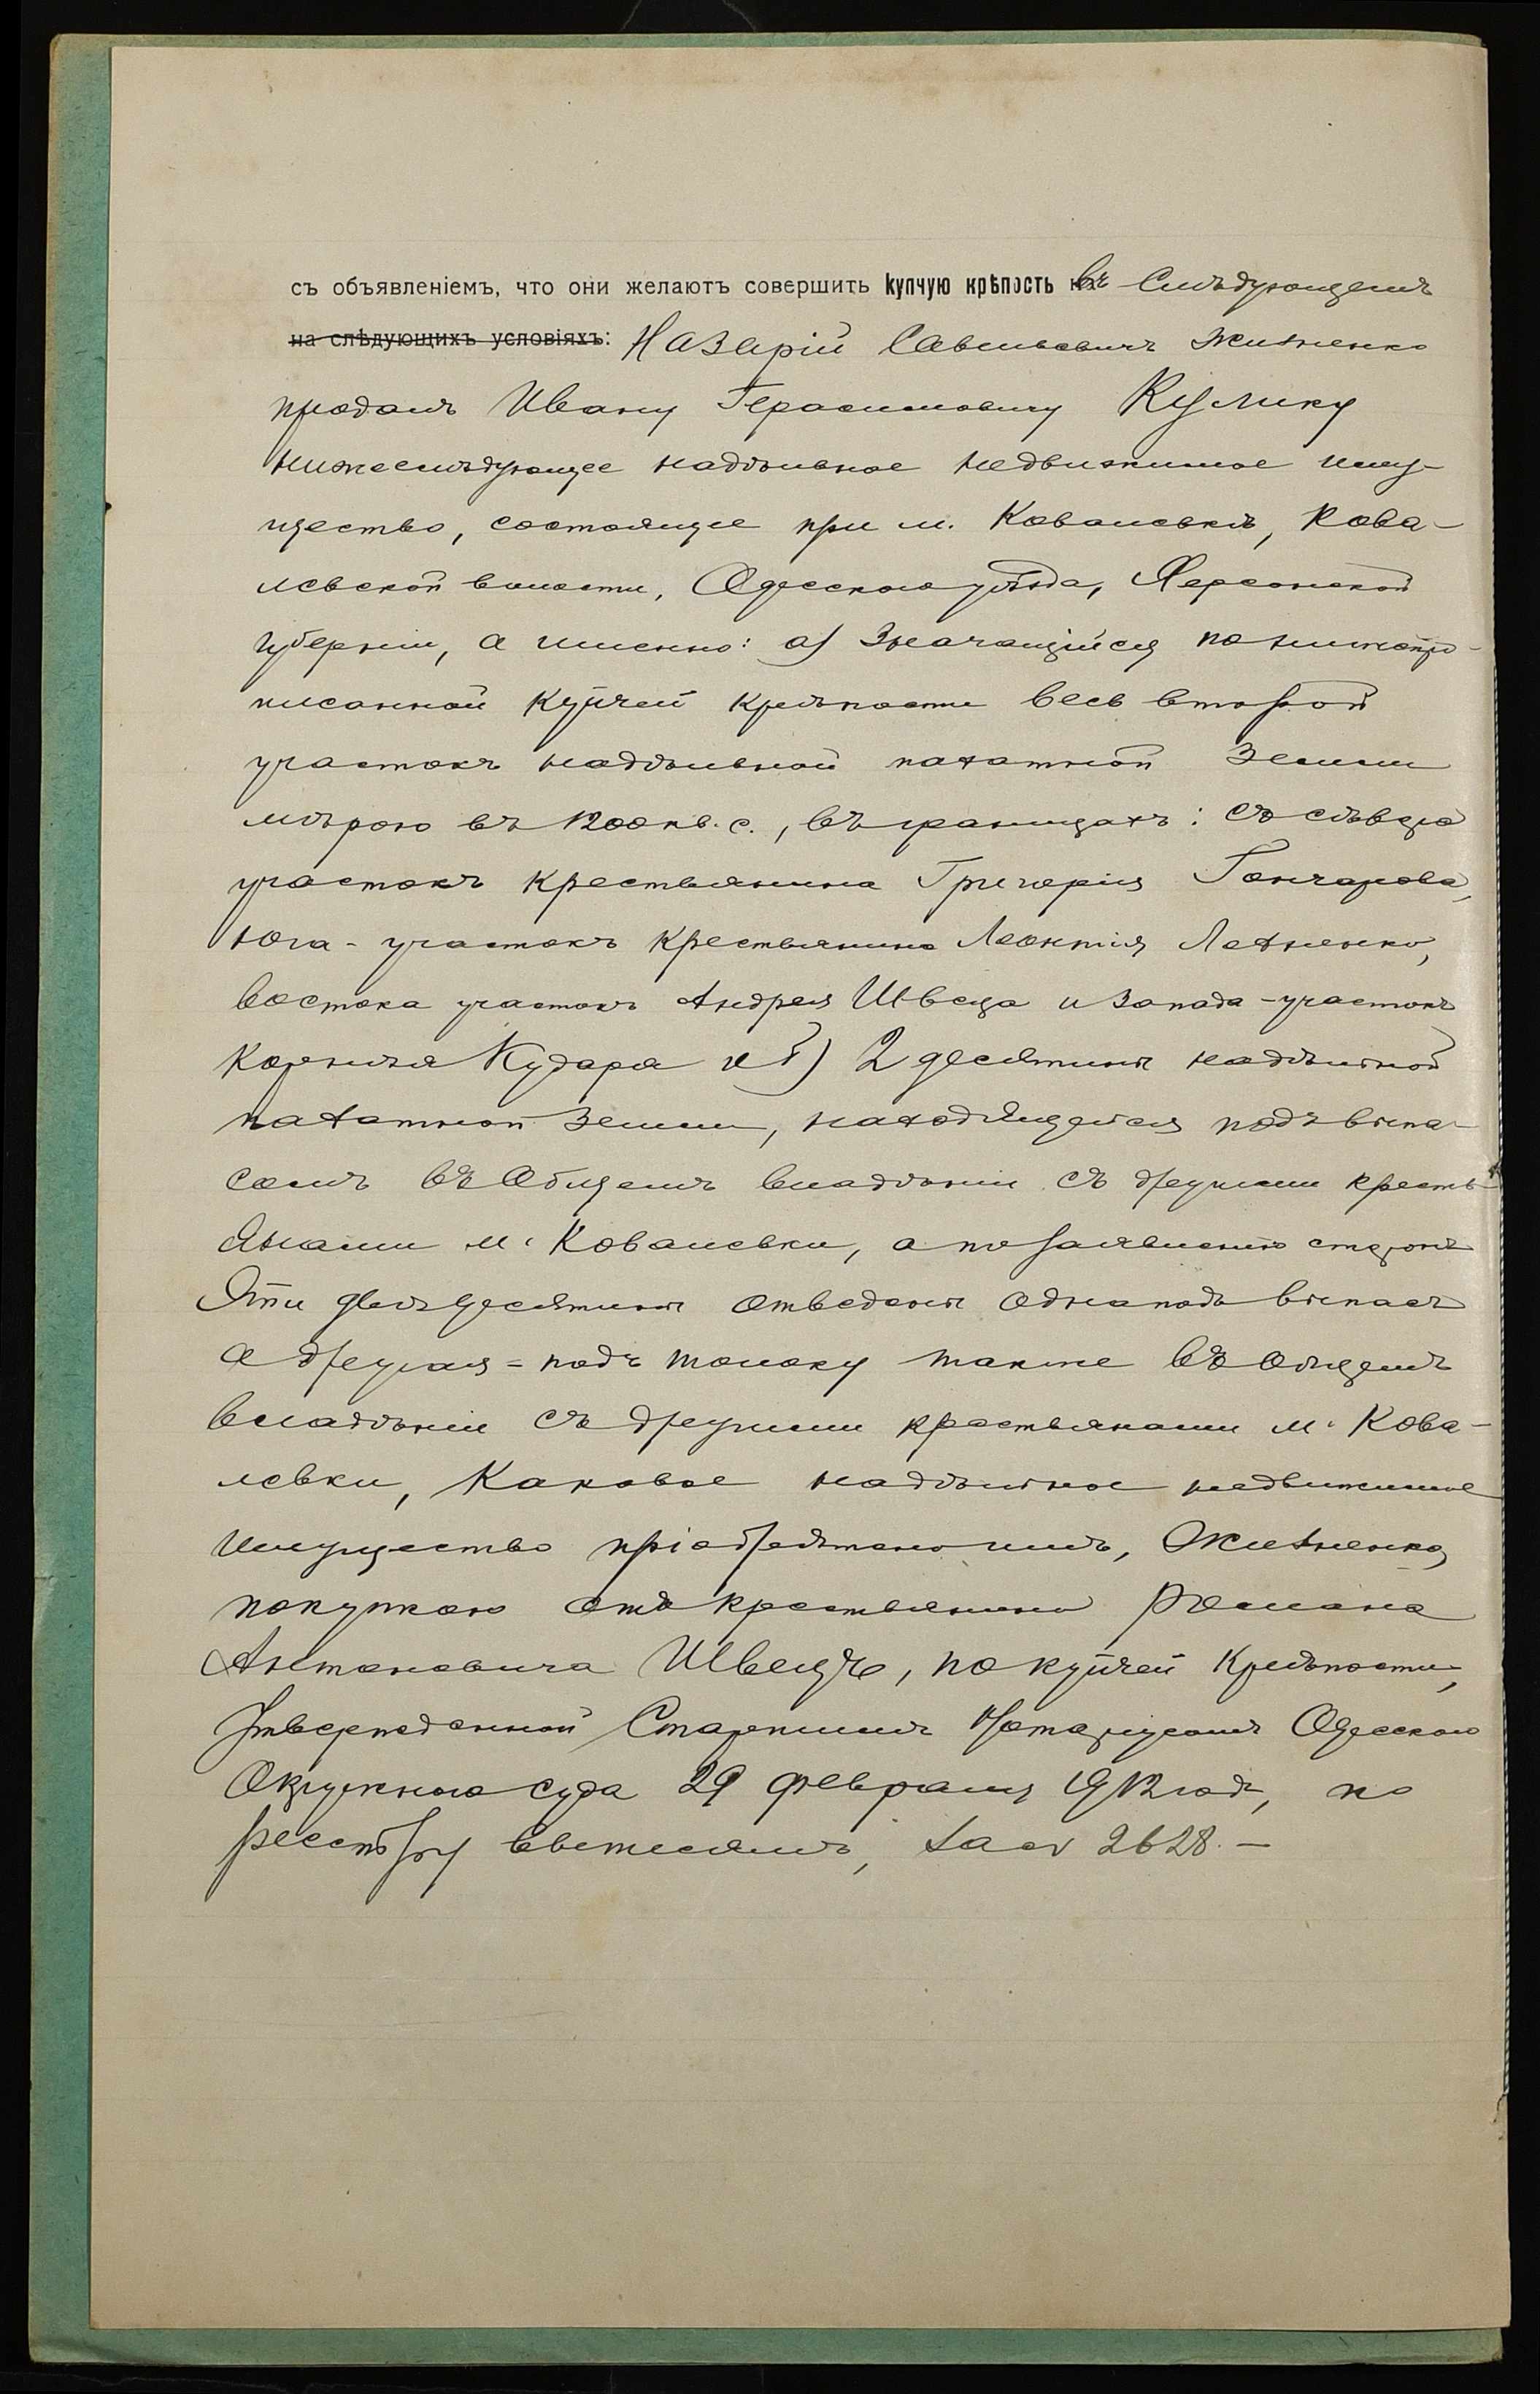 съ объявленіемъ, что они желаютъ совершить купчую крѣпость въ слѣдующемъ
на слѣдующихъ условіяхъ: Назарій Савельевичъ Жихненко
продалъ Ивану Герасимовичу Кулику
нижеслѣдующее надѣльное недвижимое иму-
щество, состоящее при м. Ковалевкѣ, Кова-
левской волости, Одесскаго уѣзда, Херсонской
губерніи, а именно: а) Значащійся по
писанной купчей крѣпости весь второй
участокъ надѣльной пахатной земли
мѣрою въ 1200 кв. с., въ границахъ: съ сѣвера
участокъ крестьянина Григорія Гончарова,
юга - участокъ крестьянина Леонтія Лахненко,
востока участокъ Андрея Швеца и запада - участокъ
Корнилія Кудара и б) 2 десятины надѣльной
пахатной земли, находящейся подъ выпа-
сомъ въ общемъ владѣніи съ другими кресть-
янами м. Ковалевки, а по заявленію сторонъ
эти двѣ десятины отведены одна подъ выпасъ
а другая - подъ толоку также въ общемъ
владѣніи съ другими крестьянами м. Кова-
левки, каковое надѣльное недвижимое
имущество пріобрѣтено имъ, Жихненко,
покупкою отъ крестьянина Романа
Антоновича Швеца, по купчей крѣпости,
утвержденной Старшимъ Нотаріусомъ Одесскаго
Окружнаго суда 29 февраля 1912 года, по
реестру 2628. -